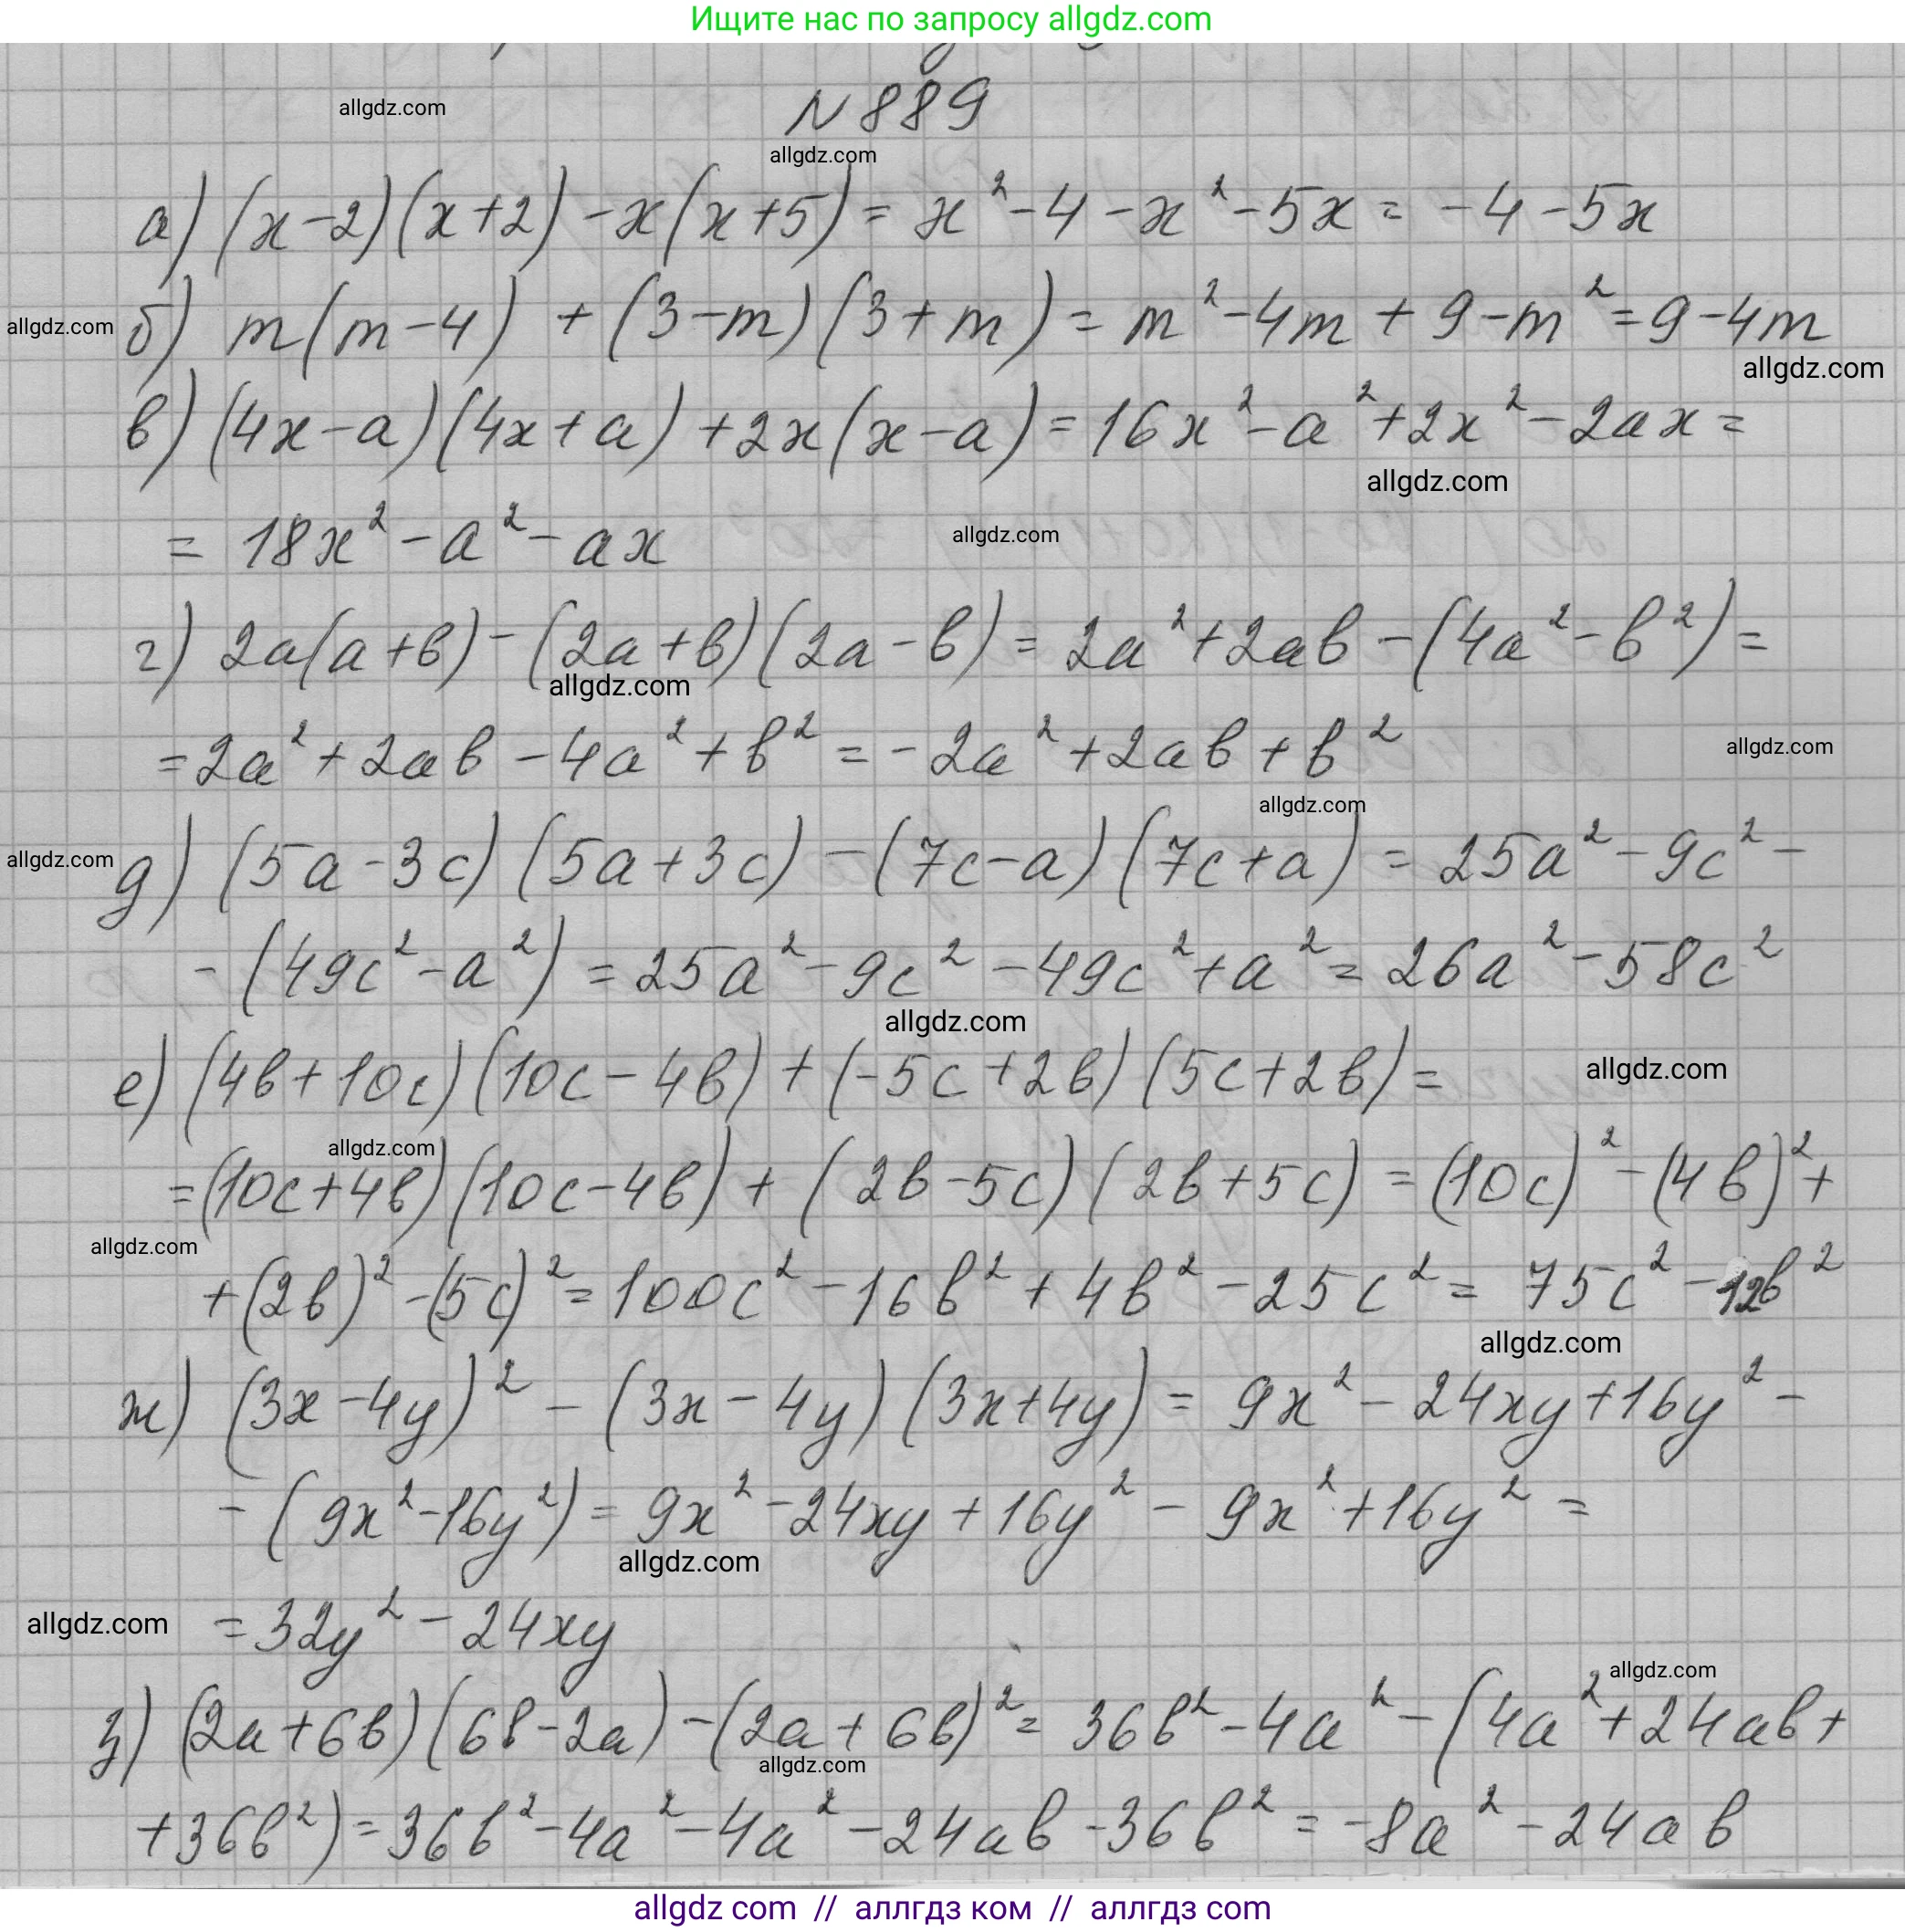 Ищите нас по запросу allgdz.com
N 889
allgdz.com
allgdz.com
а) (x-2)(x+2) - x(x+5) = x² - 4 - x² - 5x = -4 - 5x
allgdz.com
б) m(m-4) + (3-m)(3+m) = m² - 4m + 9 - m² = 9 - 4m
allgdz.com
в) (4x-a)(4x+a) + 2x(x-a) = 16x² - a² + 2x² - 2ax =
allgdz.com
= 18x² - a² - ax
allgdz.com
г) 2a(a+b) - (2a+b)(2a-b) = 2a² + 2ab - (4a² - b²) =
allgdz.com
= 2a² + 2ab - 4a² + b² = -2a² + 2ab + b²
allgdz.com
allgdz.com
allgdz.com
д) (5a-3c)(5a+3c) - (7c-a)(7c+a) = 25a² - 9c² -
- (49c² - a²) = 25a² - 9c² - 49c² + a² = 26a² - 58c²
allgdz.com
е) (4b+10c)(10c-4b) + (-5c+2b)(5c+2b) =
allgdz.com
allgdz.com
= (10c+4b)(10c-4b) + (2b-5c)(2b+5c) = (10c)² - (4b)² +
allgdz.com
+ (2b)² - (5c)² = 100c² - 16b² + 4b² - 25c² = 75c² - 12b²
allgdz.com
ж) (3x-4y)² - (3x-4y)(3x+4y) = 9x² - 24xy + 16y² -
- (9x² - 16y²) = 9x² - 24xy + 16y² - 9x² + 16y² =
allgdz.com
allgdz.com
= 32y² - 24xy
allgdz.com
з) (2a+6b)(6b-2a) - (2a+6b)² = 36b² - 4a² - (4a² + 24ab +
allgdz.com
+ 36b²) = 36b² - 4a² - 4a² - 24ab - 36b² = -8a² - 24ab
allgdz com // аллгдз ком // аллгдз com